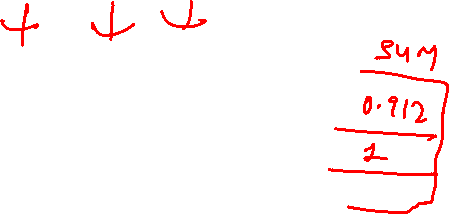 SUM
0.912
1